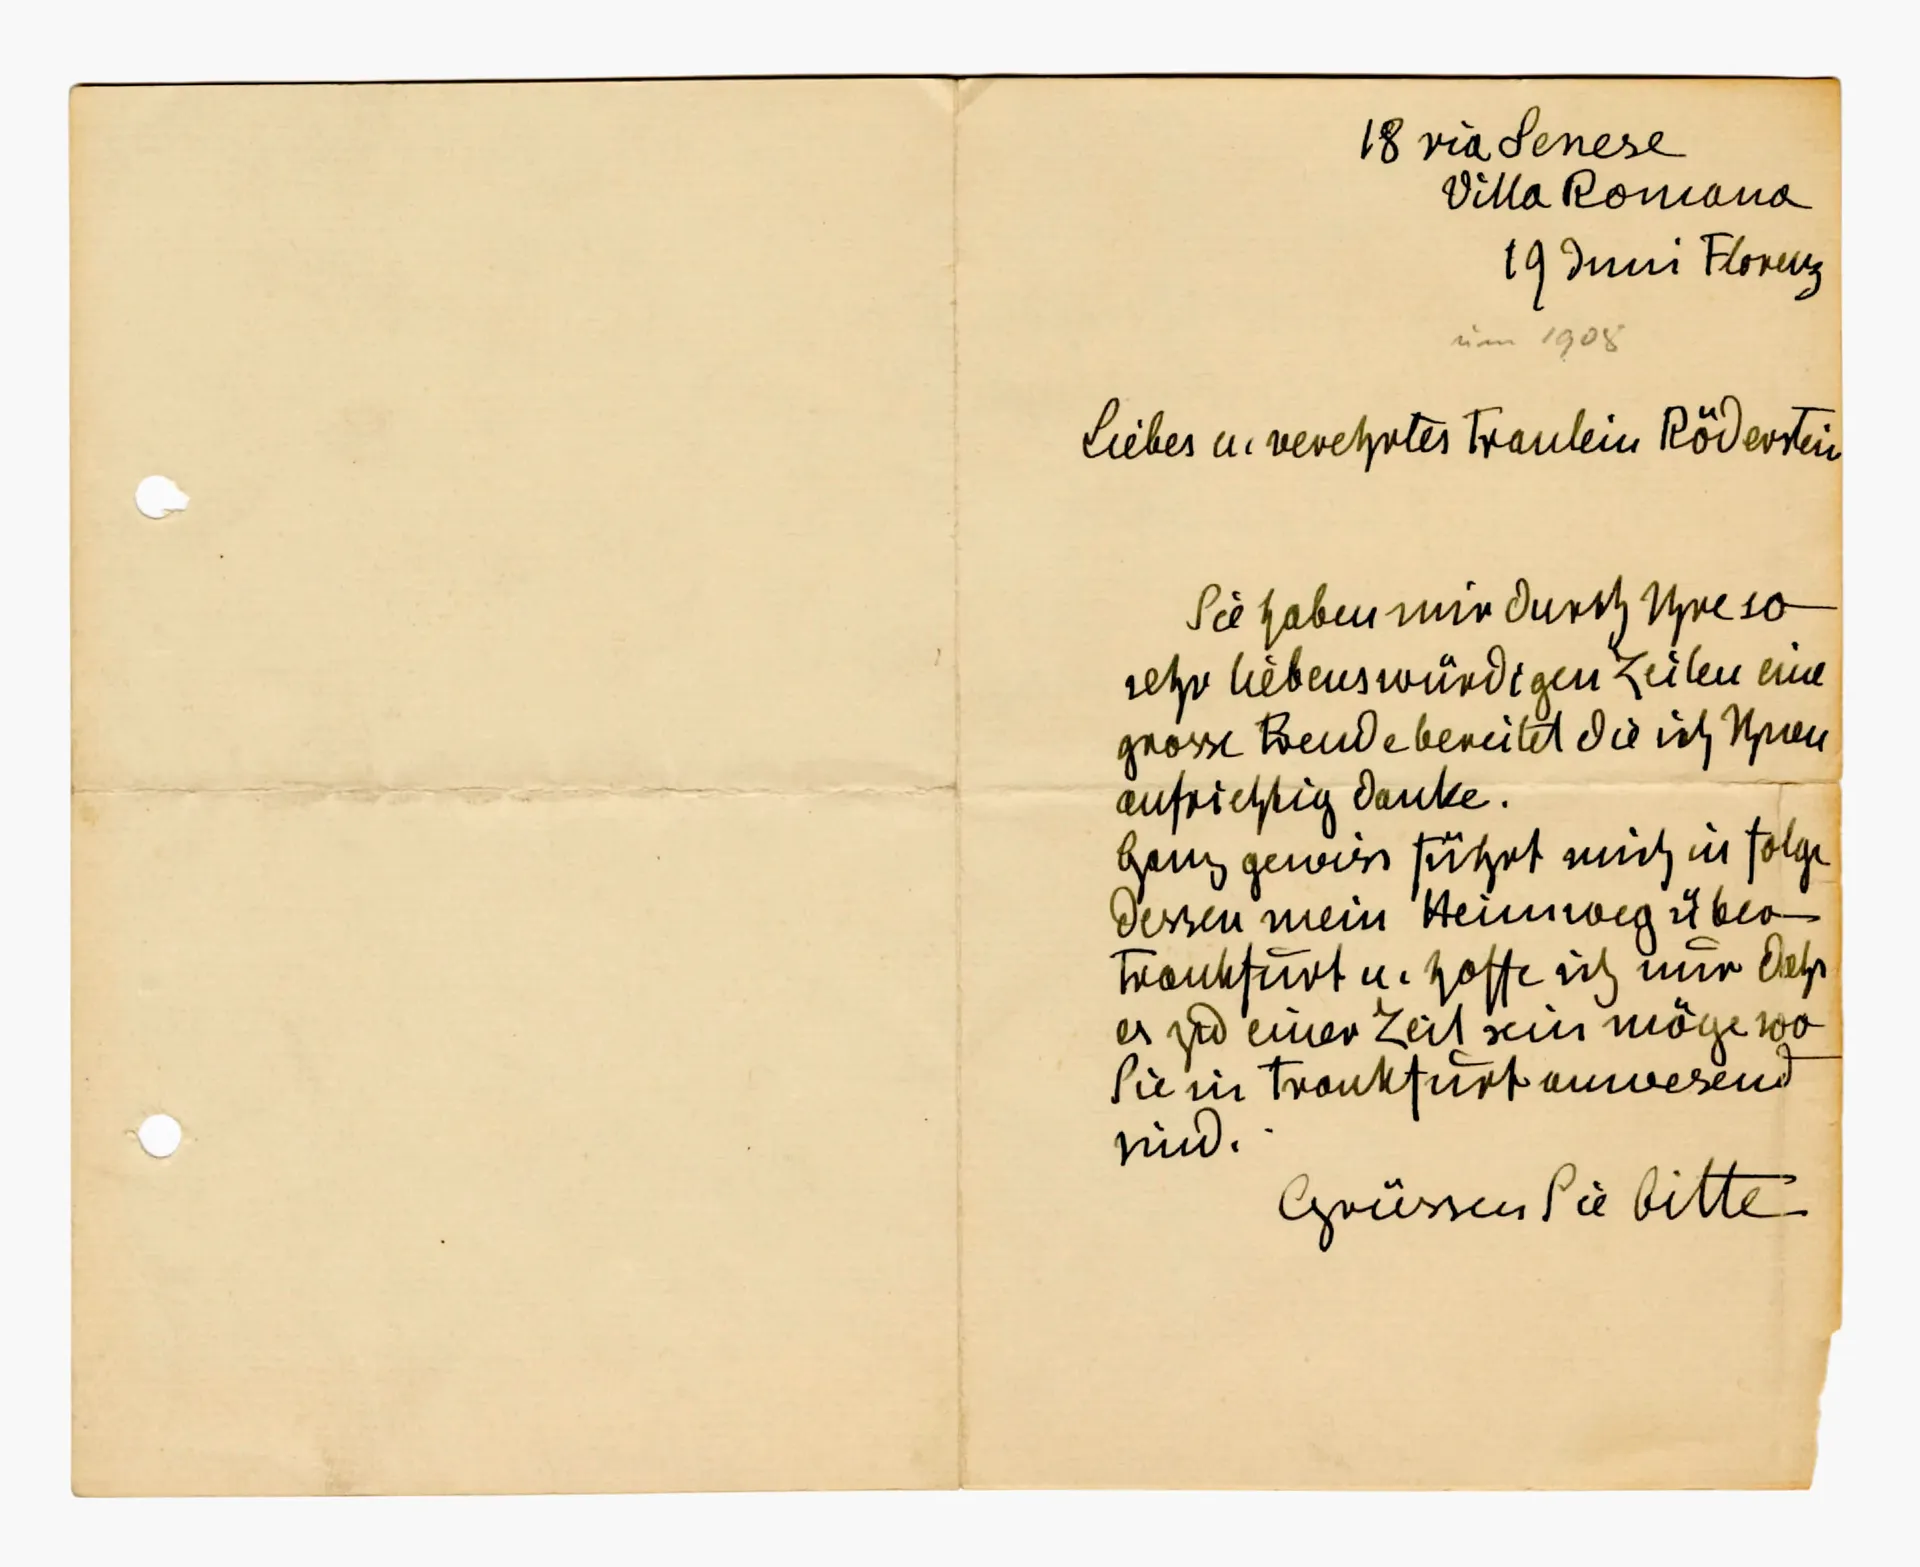 18 via Senese
Villa Romana
19 Juni Florenz
um 1908
Liebes u. verehrtes Fraulein Röderstein
Sie haben mir durch Ihre so
sehr liebenswürdigen Zeilen eine
grosse Freude bereitet die ich Ihnen
aufrichtig danke.
Ganz gewiss führt mich in folge
dessen mein Heimweg über
Frankfurt u. hoffe ich nur dass
es zu einer Zeit sein möge wo
Sie in Frankfurt anwesend
sind.
Grüssen Sie bitte